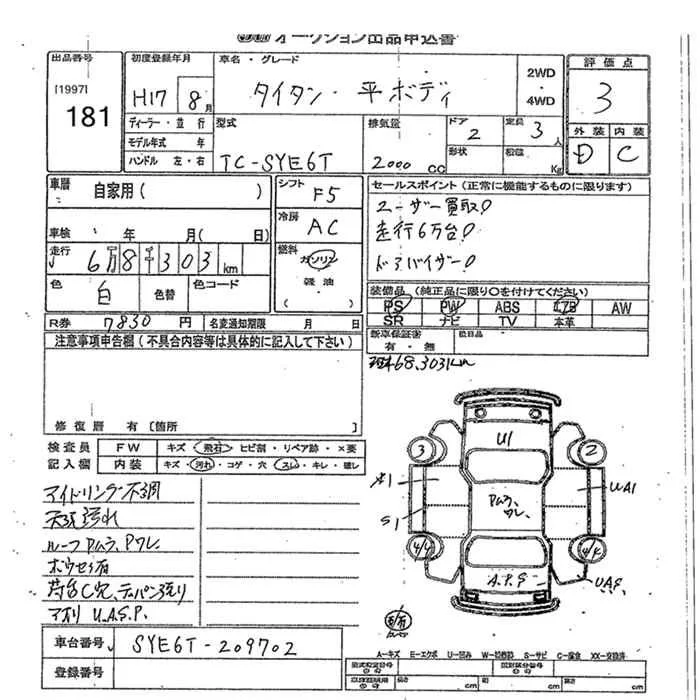 オークション出品申込書
出品番号 初度登録年月 車名・グレード 評価点
[1997] 181
H17 8月
タイタン・平ボディ
2WD・4WD
3
ディーラー・並行 型式 排気量 ドア 定員 外装 内装
モデル年式 年
ハンドル 左・右
TC-SYE6T 2000cc 2 形状 3人 積載 Kg D C
車歴 自家用( ) シフト F5
セールスポイント(正常に機能するものに限ります)
ユーザー買取!
走行6万台!
ドアバイザー!
車検 年 月( 日) 冷房 AC
走行 6万8千303km
燃料 ガソリン 軽油
色 白 色替 色コード
装備品(純正品に限り○を付けてください)
PS PW ABS エアB AW
SR ナビ TV 本革
R券 7830円 名変通知期限 月 日
新車保証書 有・無 後日品
68,303km
注意事項申告欄(不具合内容等は具体的に記入して下さい)
修復歴 有〔箇所 〕
検査員記入欄
FW キズ・飛石・ヒビ割・リペア跡・×要
内装 キズ・汚れ・コゲ・穴・スレ・キレ・破レ
アイドリング不調
天張汚れ
ルーフPムラ、Pワレ
ホウセイ有
荷台C穴、テッパン張り
アオリ U.A.S.P.
U1
3
2
S1
UA1
Pムラ
ワレ
4/4
4/4
A.P.S
U.A.S.
車台番号 SYE6T-209702
登録番号
A―キズ E―エクボ U―凹み W―補修跡 S―サビ C―腐食 XX―交換済
型式指定番号 類別区分番号
長さ cm 幅 cm 高さ cm